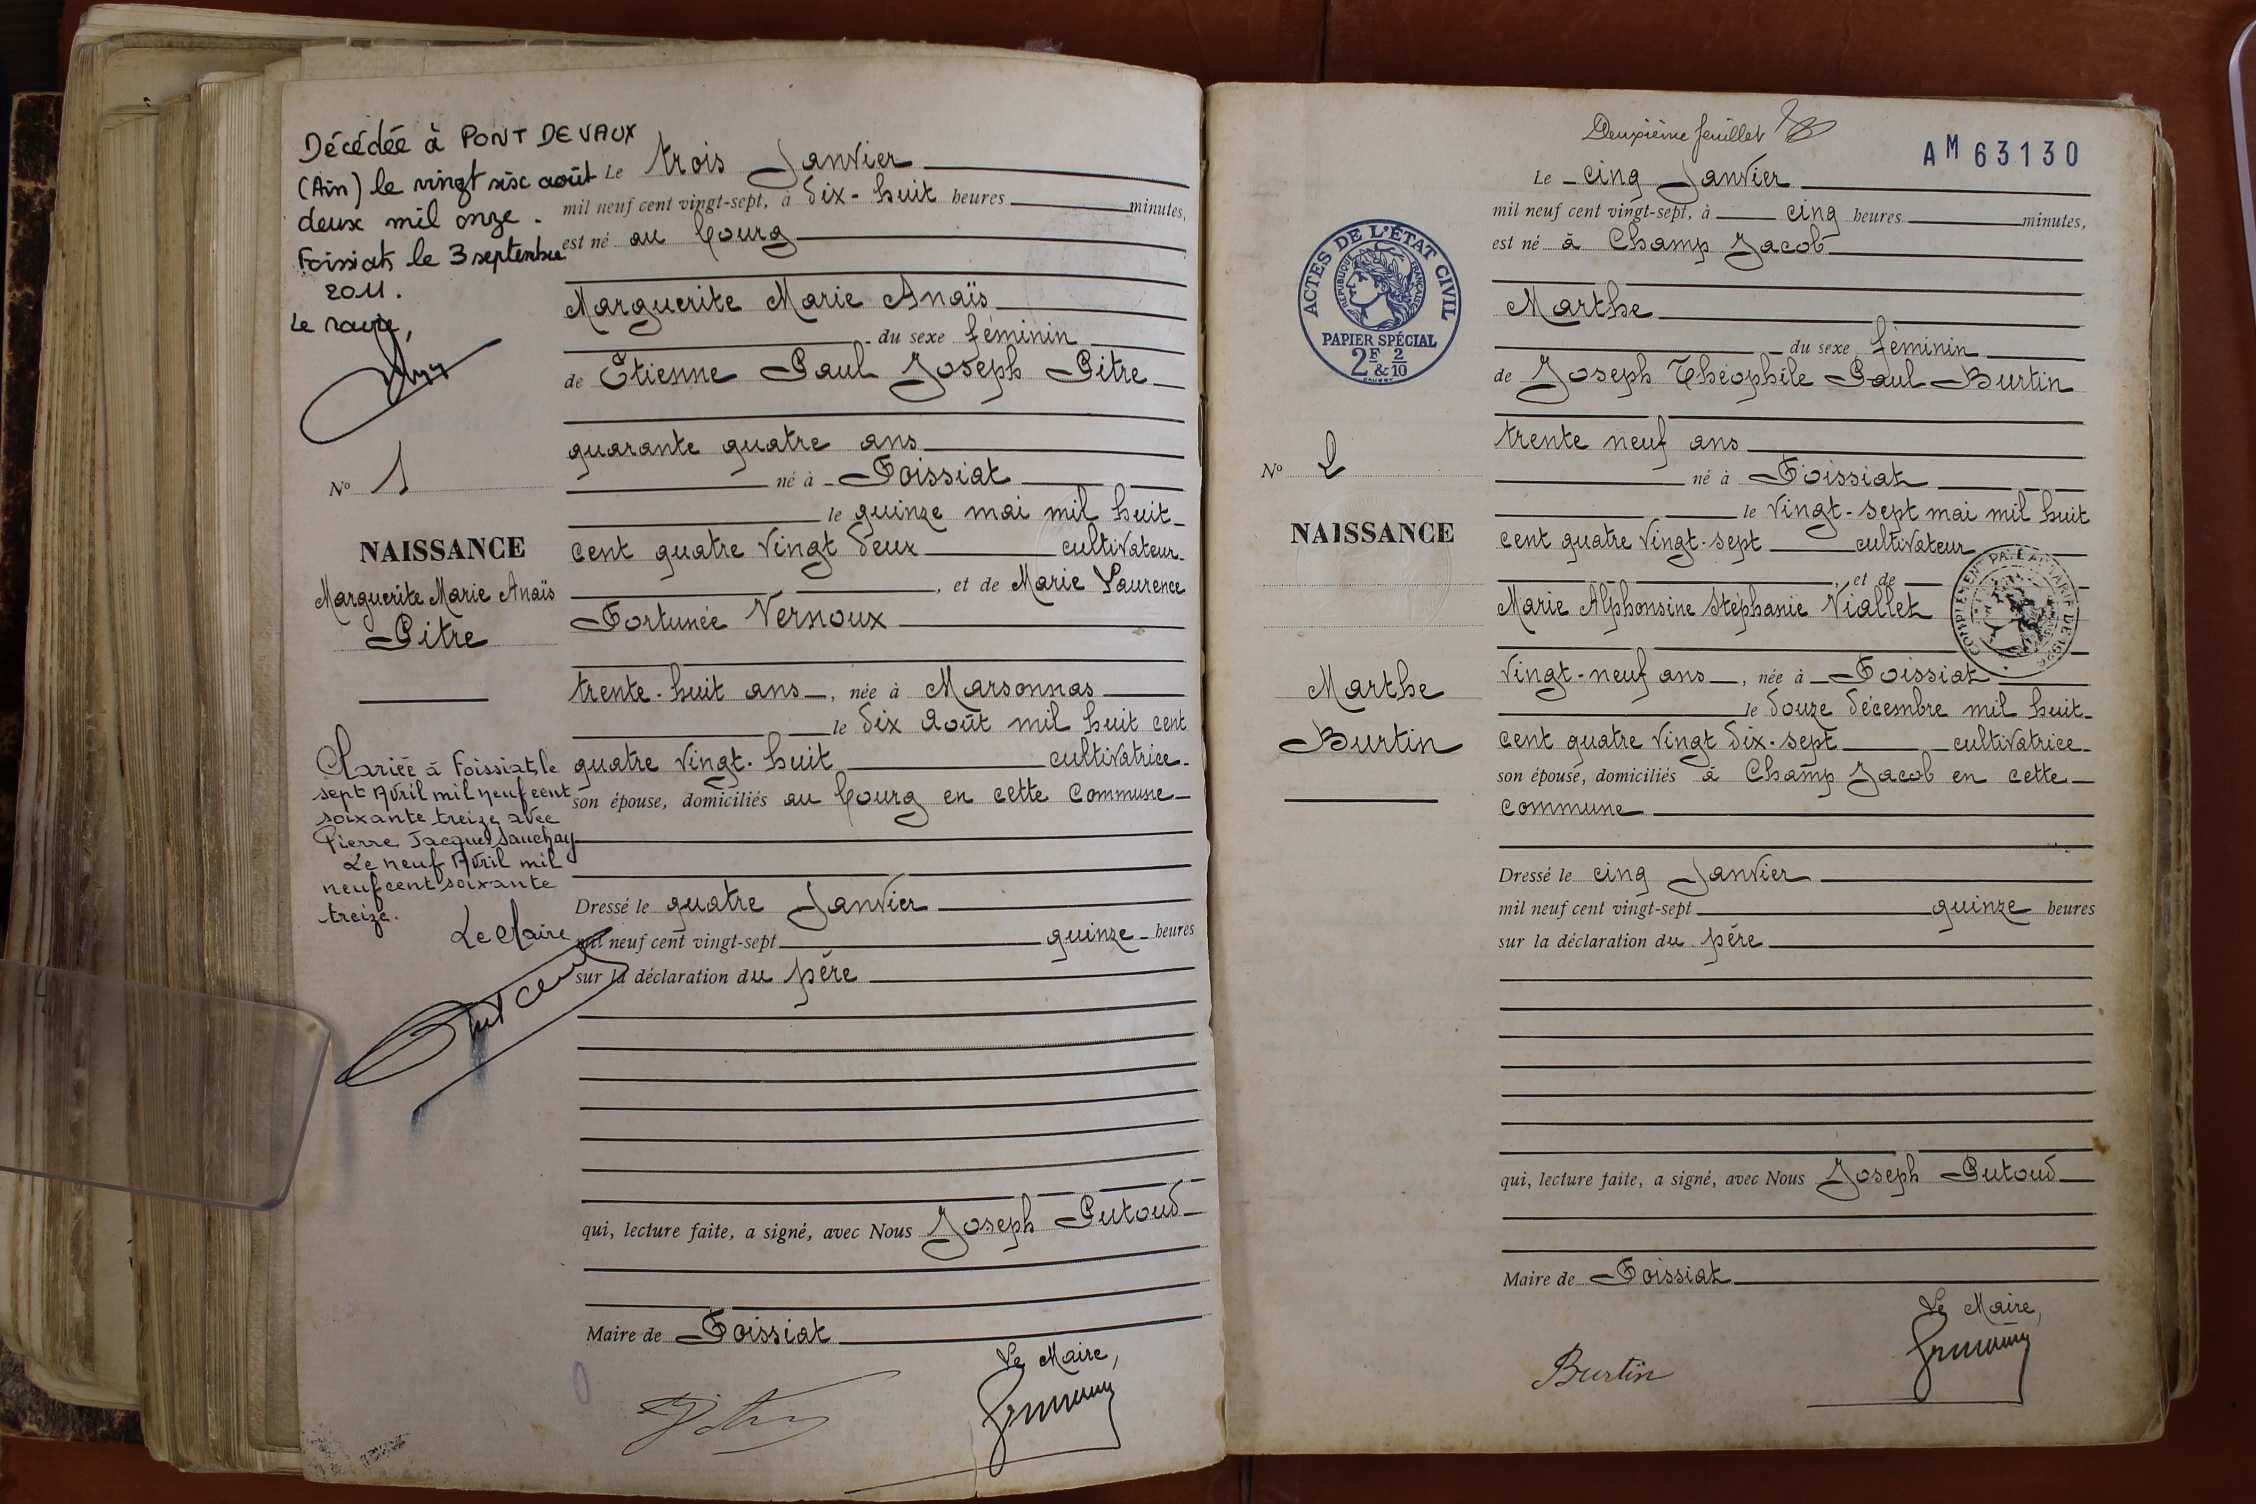 Décédée à PONT DE VAUX
(Ain) le vingt six août
deux mil onze.
Foissiat le 3 septembre
2011.
Le Maire,
N° 1
NAISSANCE
Marguerite Marie Anaïs
Pitre
Mariée à Foissiat, le
sept Avril mil neuf cent
soixante treize avec
Pierre Jacques Sauchay
Le neuf Avril mil
neuf cent soixante
treize.
Le Maire
Le trois Janvier
mil neuf cent vingt-sept, à dix-huit heures minutes,
est né au bourg
Marguerite Marie Anaïs
du sexe féminin
de Etienne Paul Joseph Pitre
quarante quatre ans
né à Foissiat
le quinze mai mil huit
cent quatre vingt deux cultivateur
, et de Marie Laurence
Fortunée Vernoux
trente-huit ans, née à Marsonnas
le dix Août mil huit cent
quatre vingt-huit cultivatrice
son épouse, domiciliés au bourg en cette commune
Dressé le quatre Janvier
mil neuf cent vingt-sept quinze heures
sur la déclaration du père
qui, lecture faite, a signé, avec Nous Joseph Putoud
Maire de Foissiat
Le Maire,
Deuxième feuillet
AM 63130
ACTES DE L'ÉTAT CIVIL
RÉPUBLIQUE FRANÇAISE
PAPIER SPÉCIAL
2F & 2/10
N° 2
NAISSANCE
Marthe
Burtin
Le cinq Janvier
mil neuf cent vingt-sept, à cinq heures minutes,
est né à Champ Jacob
Marthe
du sexe féminin
de Joseph Théophile Paul Burtin
trente neuf ans
né à Foissiat
le vingt-sept mai mil huit
cent quatre vingt-sept cultivateur
, et de
Marie Alphonsine Stéphanie Viallet
vingt-neuf ans, née à Foissiat
le douze décembre mil huit
cent quatre vingt dix-sept cultivatrice
son épouse, domiciliés à Champ Jacob en cette
commune
Dressé le cinq Janvier
mil neuf cent vingt-sept quinze heures
sur la déclaration du père
qui, lecture faite, a signé, avec Nous Joseph Putoud
Maire de Foissiat
Le Maire,
Burtin